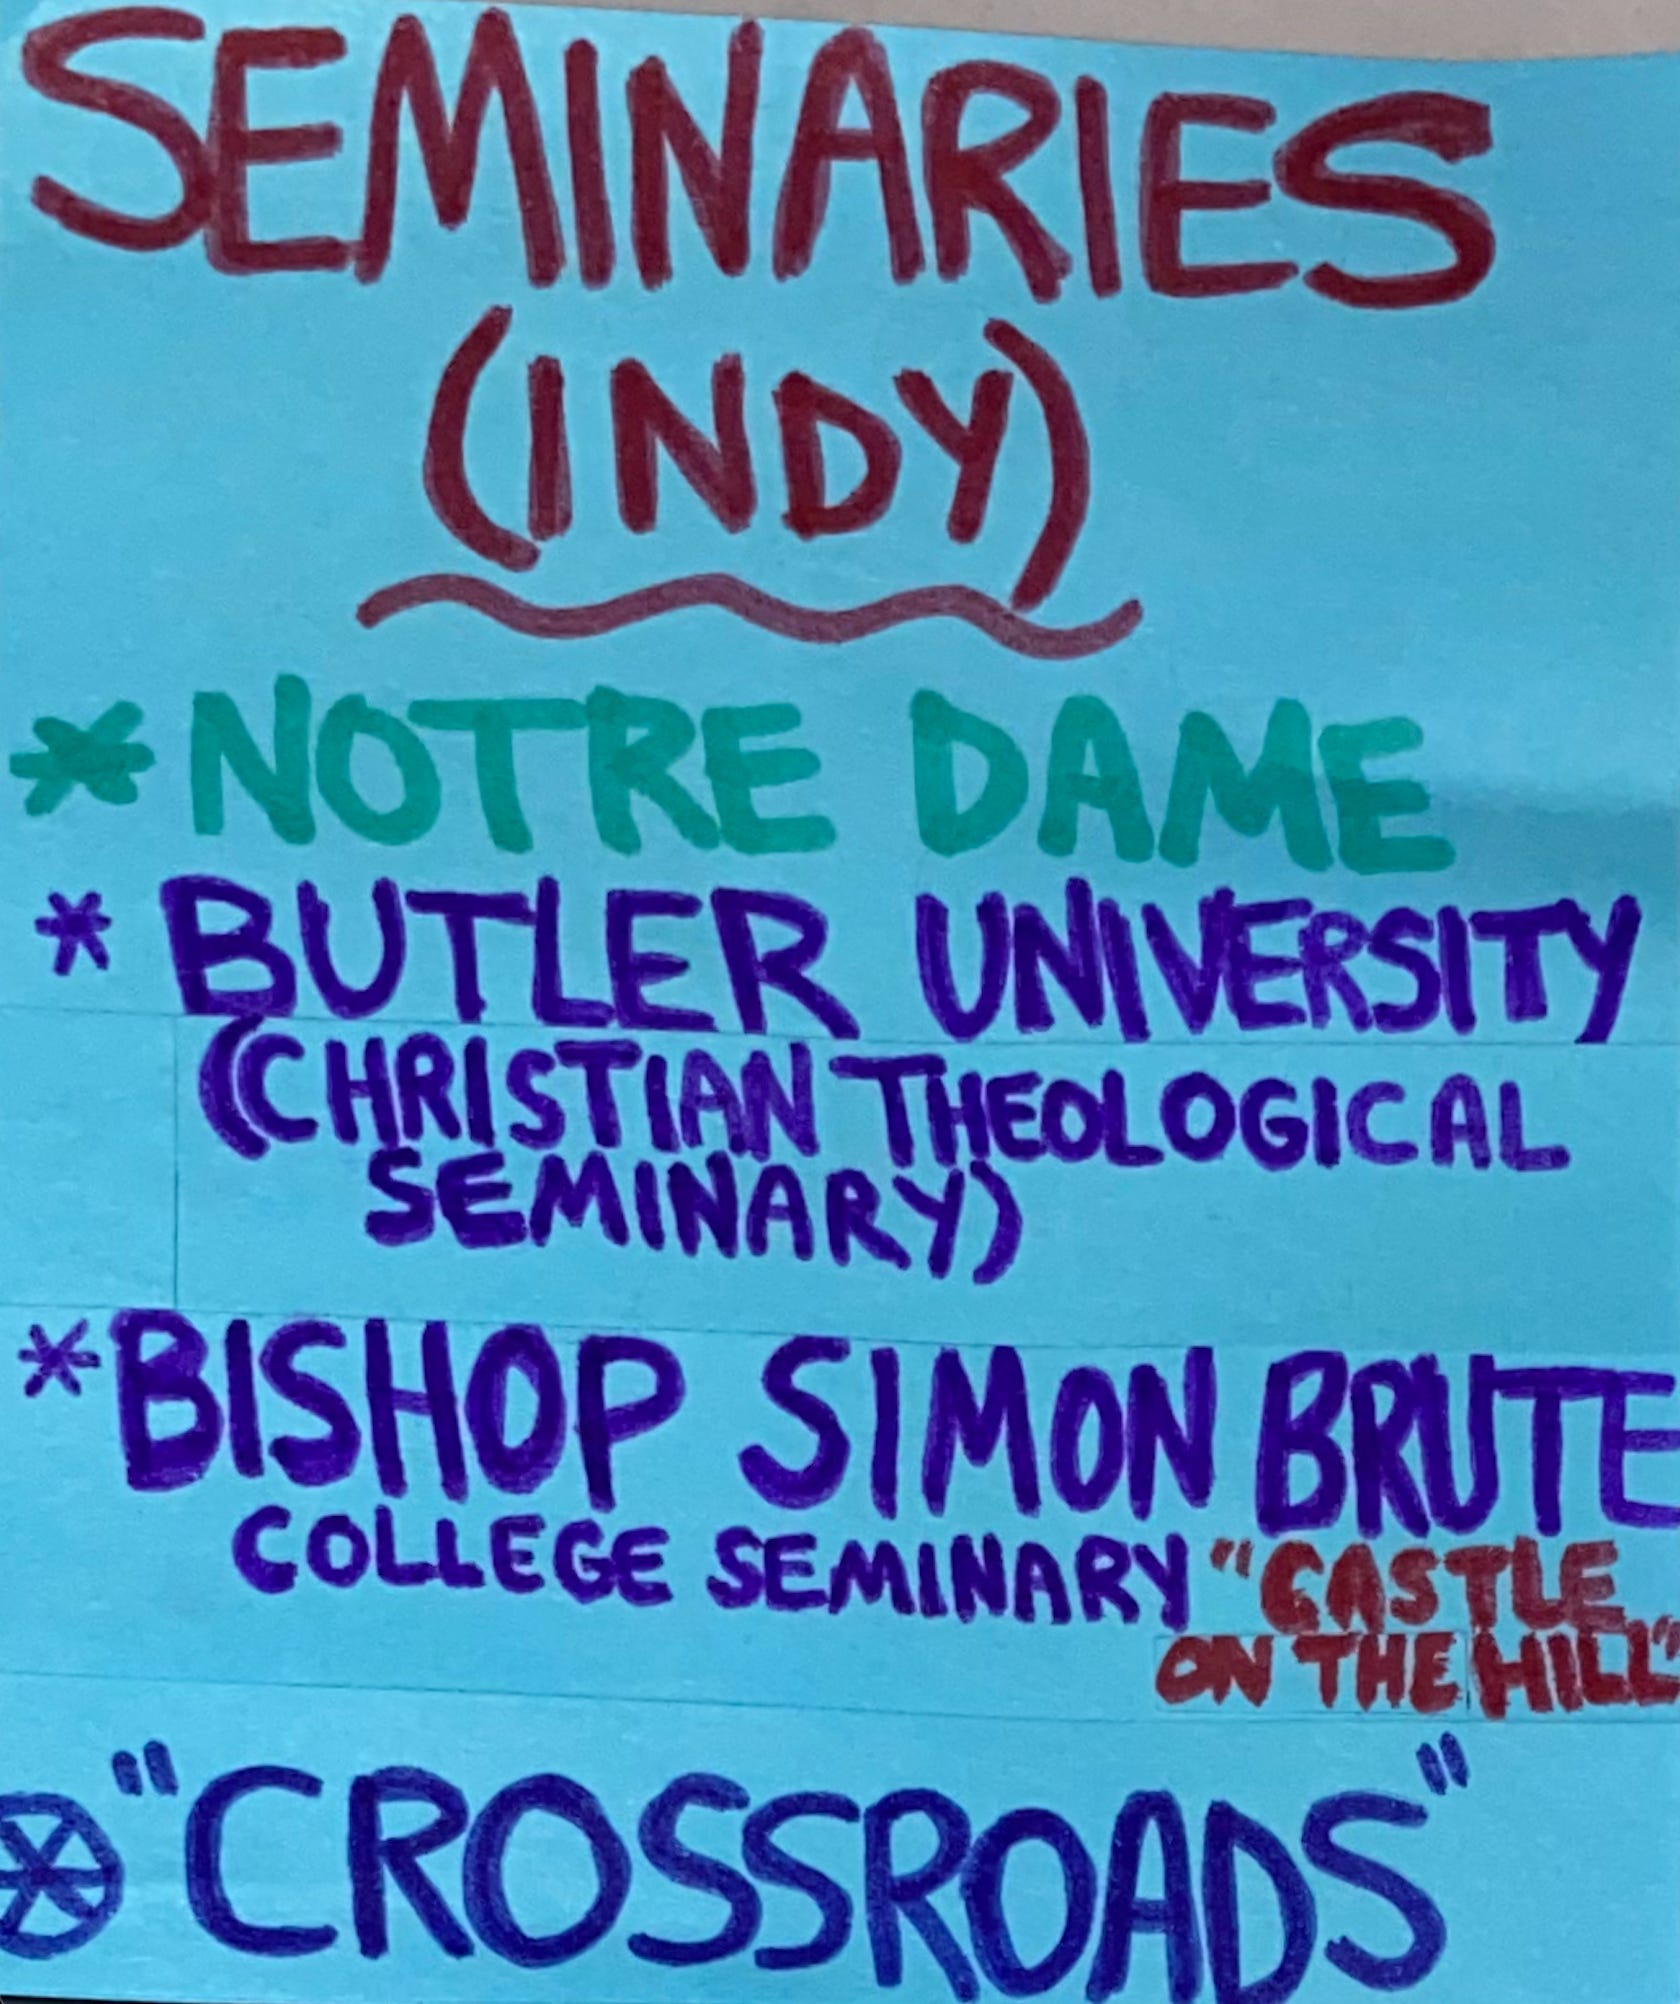 SEMINARIES
(INDY)
* NOTRE DAME
* BUTLER UNIVERSITY
(CHRISTIAN THEOLOGICAL
SEMINARY)
* BISHOP SIMON BRUTE
COLLEGE SEMINARY "CASTLE
ON THE HILL"
⊛ "CROSSROADS"